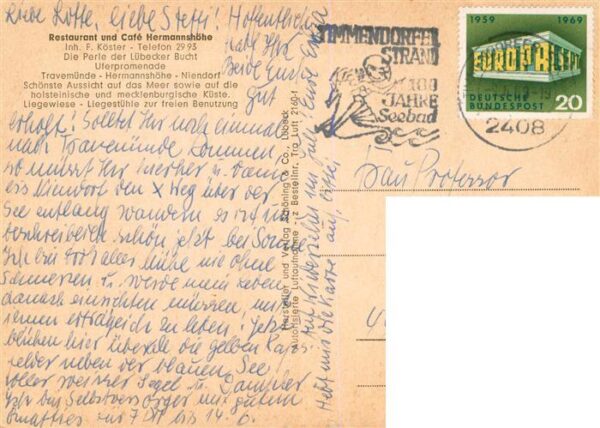 Liebe Lotte, liebe Steffi! Hoffentlich
habt Ihr
Beide Euch
gut
Restaurant und Café Hermannshöhe
Inh. F. Köster - Telefon 29 93
Die Perle der Lübecker Bucht
Uferpromenade
Travemünde - Hermannshöhe - Niendorf
Schönste Aussicht auf das Meer sowie auf die
holsteinische und mecklenburgische Küste.
Liegewiese - Liegestühle zur freien Benutzung
erholt! Solltet Ihr noch einmal
nach Travemünde kommen
so müsst Ihr hierher u. dann
bis Niendorf den Weg über der
See entlang wandern es ist un
beschreiblich schön jetzt bei Sonne
Ich bin trotz alles mühe nie ohne
Schmerzen u. werde mein Leben
danach einrichten müssen, um
erträglich zu leben! Jetzt
blühen hier überall die gelben Raps
felder neben der blauen See
voller weisser Segel u. Dampfer
Selbstversorger mit gutem
7 DM bis 14. 6.
Hersteller und Verlag Schöning & Co., Lübeck
Autorisierte Luftaufnahme
Bestellnr. Tra Luft 2160
Auf Wiedersehen
Hebt mir die Karte auf, bitte!
TIMMENDORFER
STRAND
100
JAHRE
Seebad
1959 1969
EUROPA CEPT
DEUTSCHE
BUNDESPOST
20
2408
Frau Professor